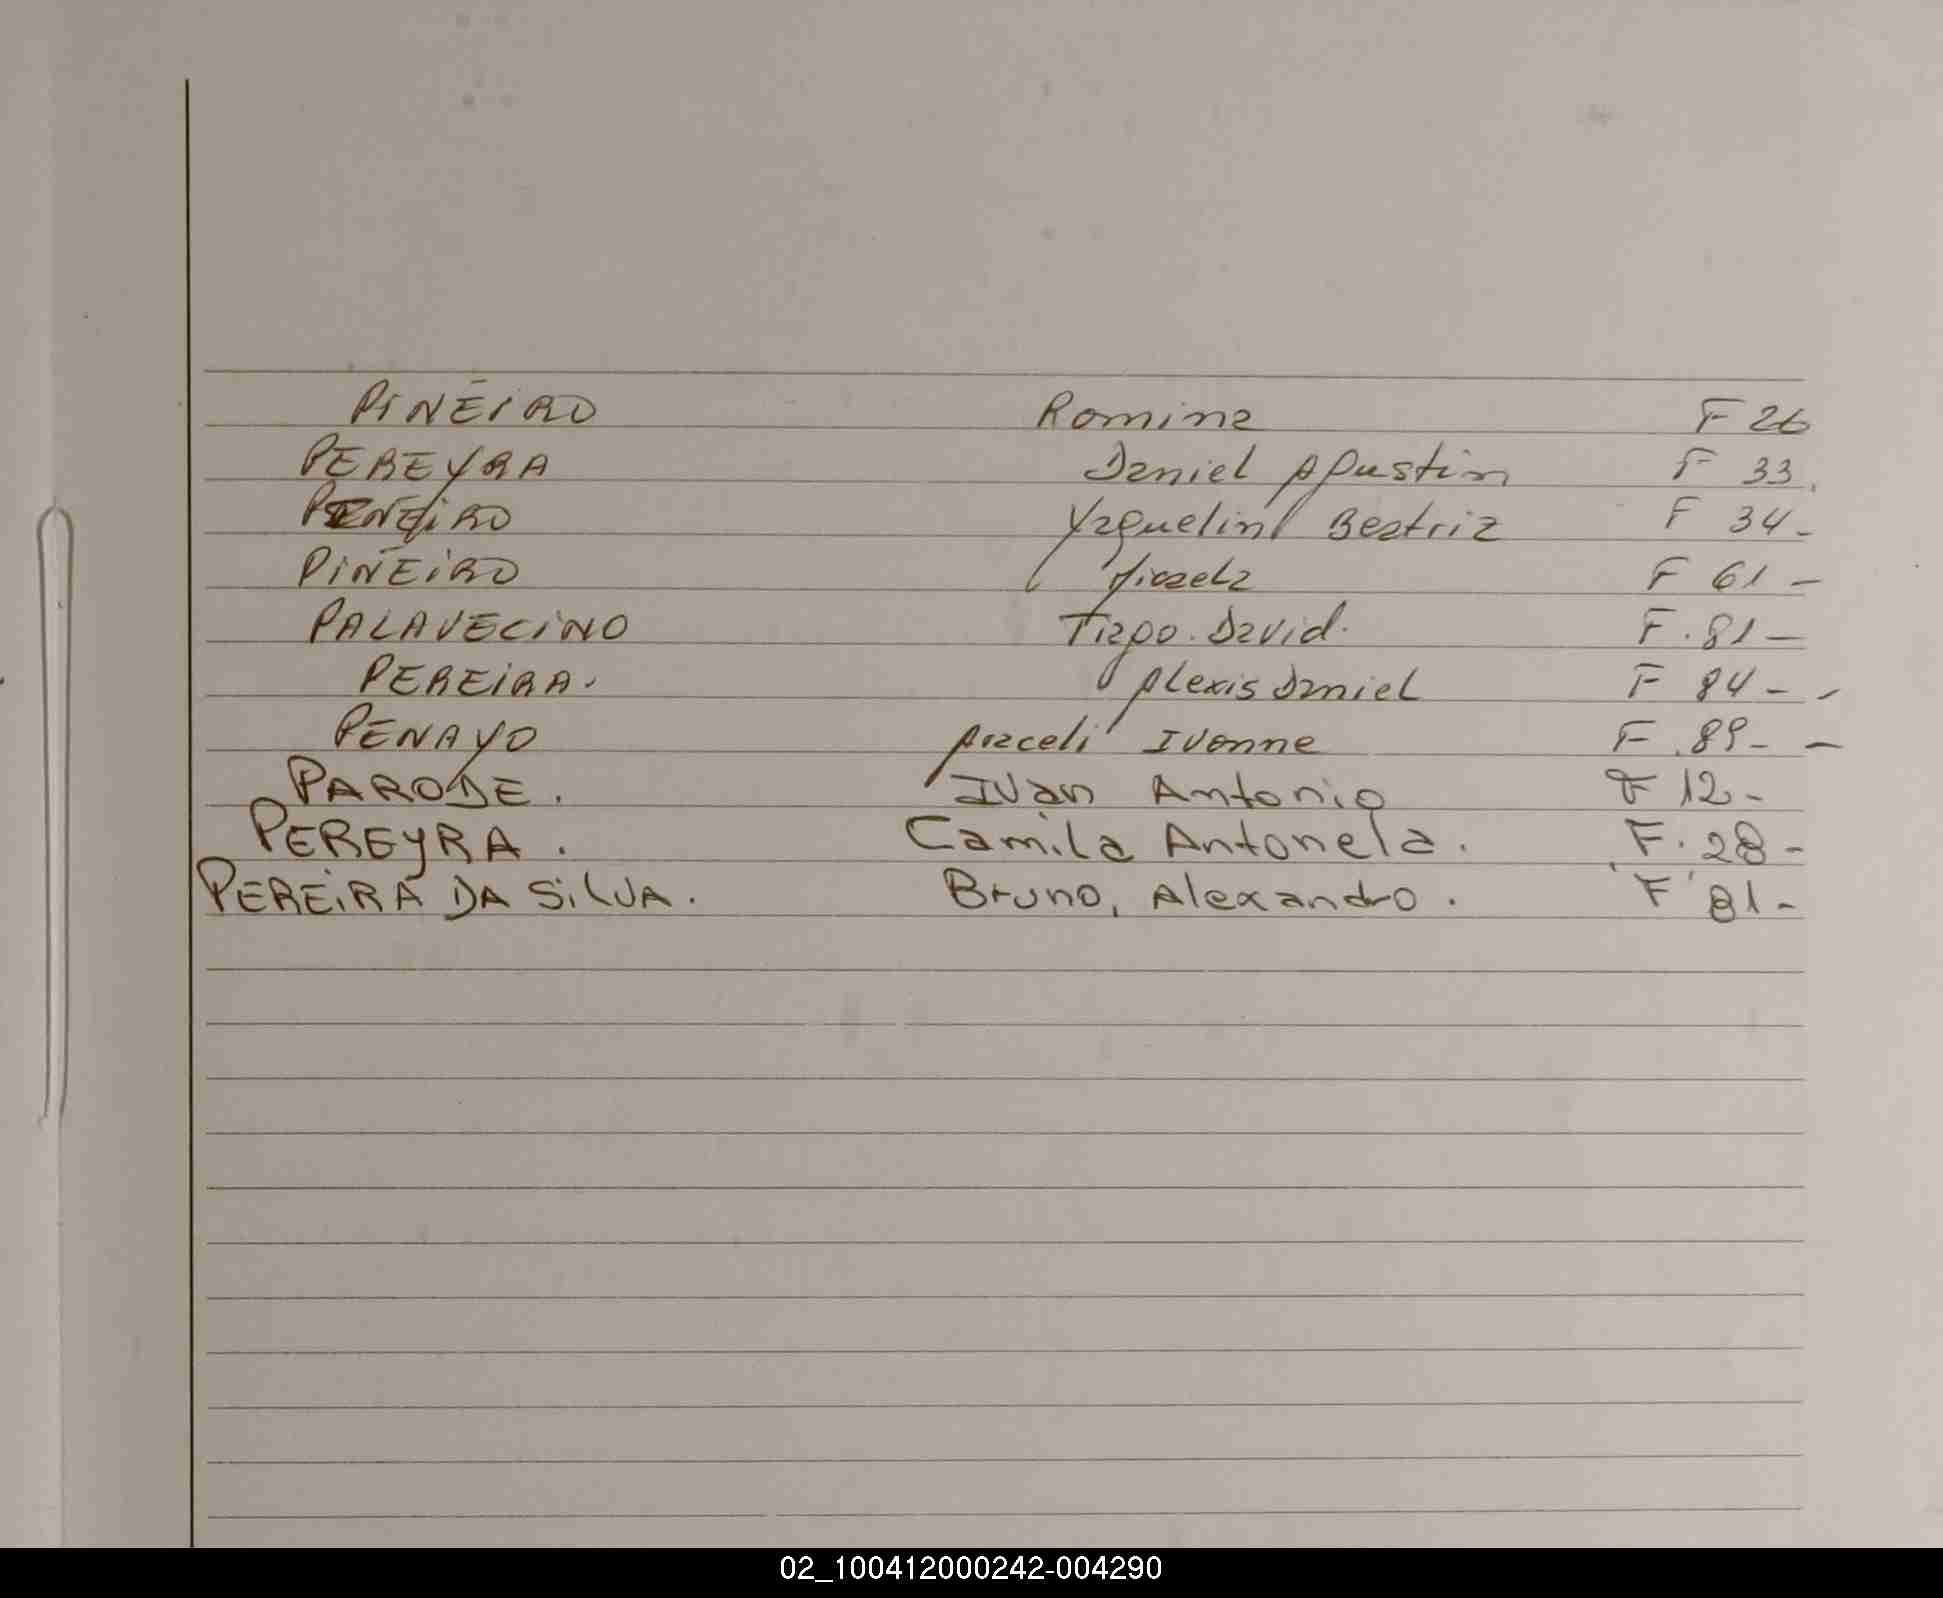 PIÑEIRO Romina F 26
PEREYRA Daniel Agustin F 33.
PIÑEIRO Yaquelin Beatriz F 34-
PIÑEIRO F 61-
PALAVECINO Tiago. David. F. 81-
PEREIRA. Alexis Daniel F 84--
PENAYO Araceli Ivonne F. 89--
PARODE. Iván Antonio F 12-
PEREYRA. Camila Antonela. F. 28-
PEREIRA DA SILVA. Bruno, Alexandro. F 81-
02_100412000242-004290